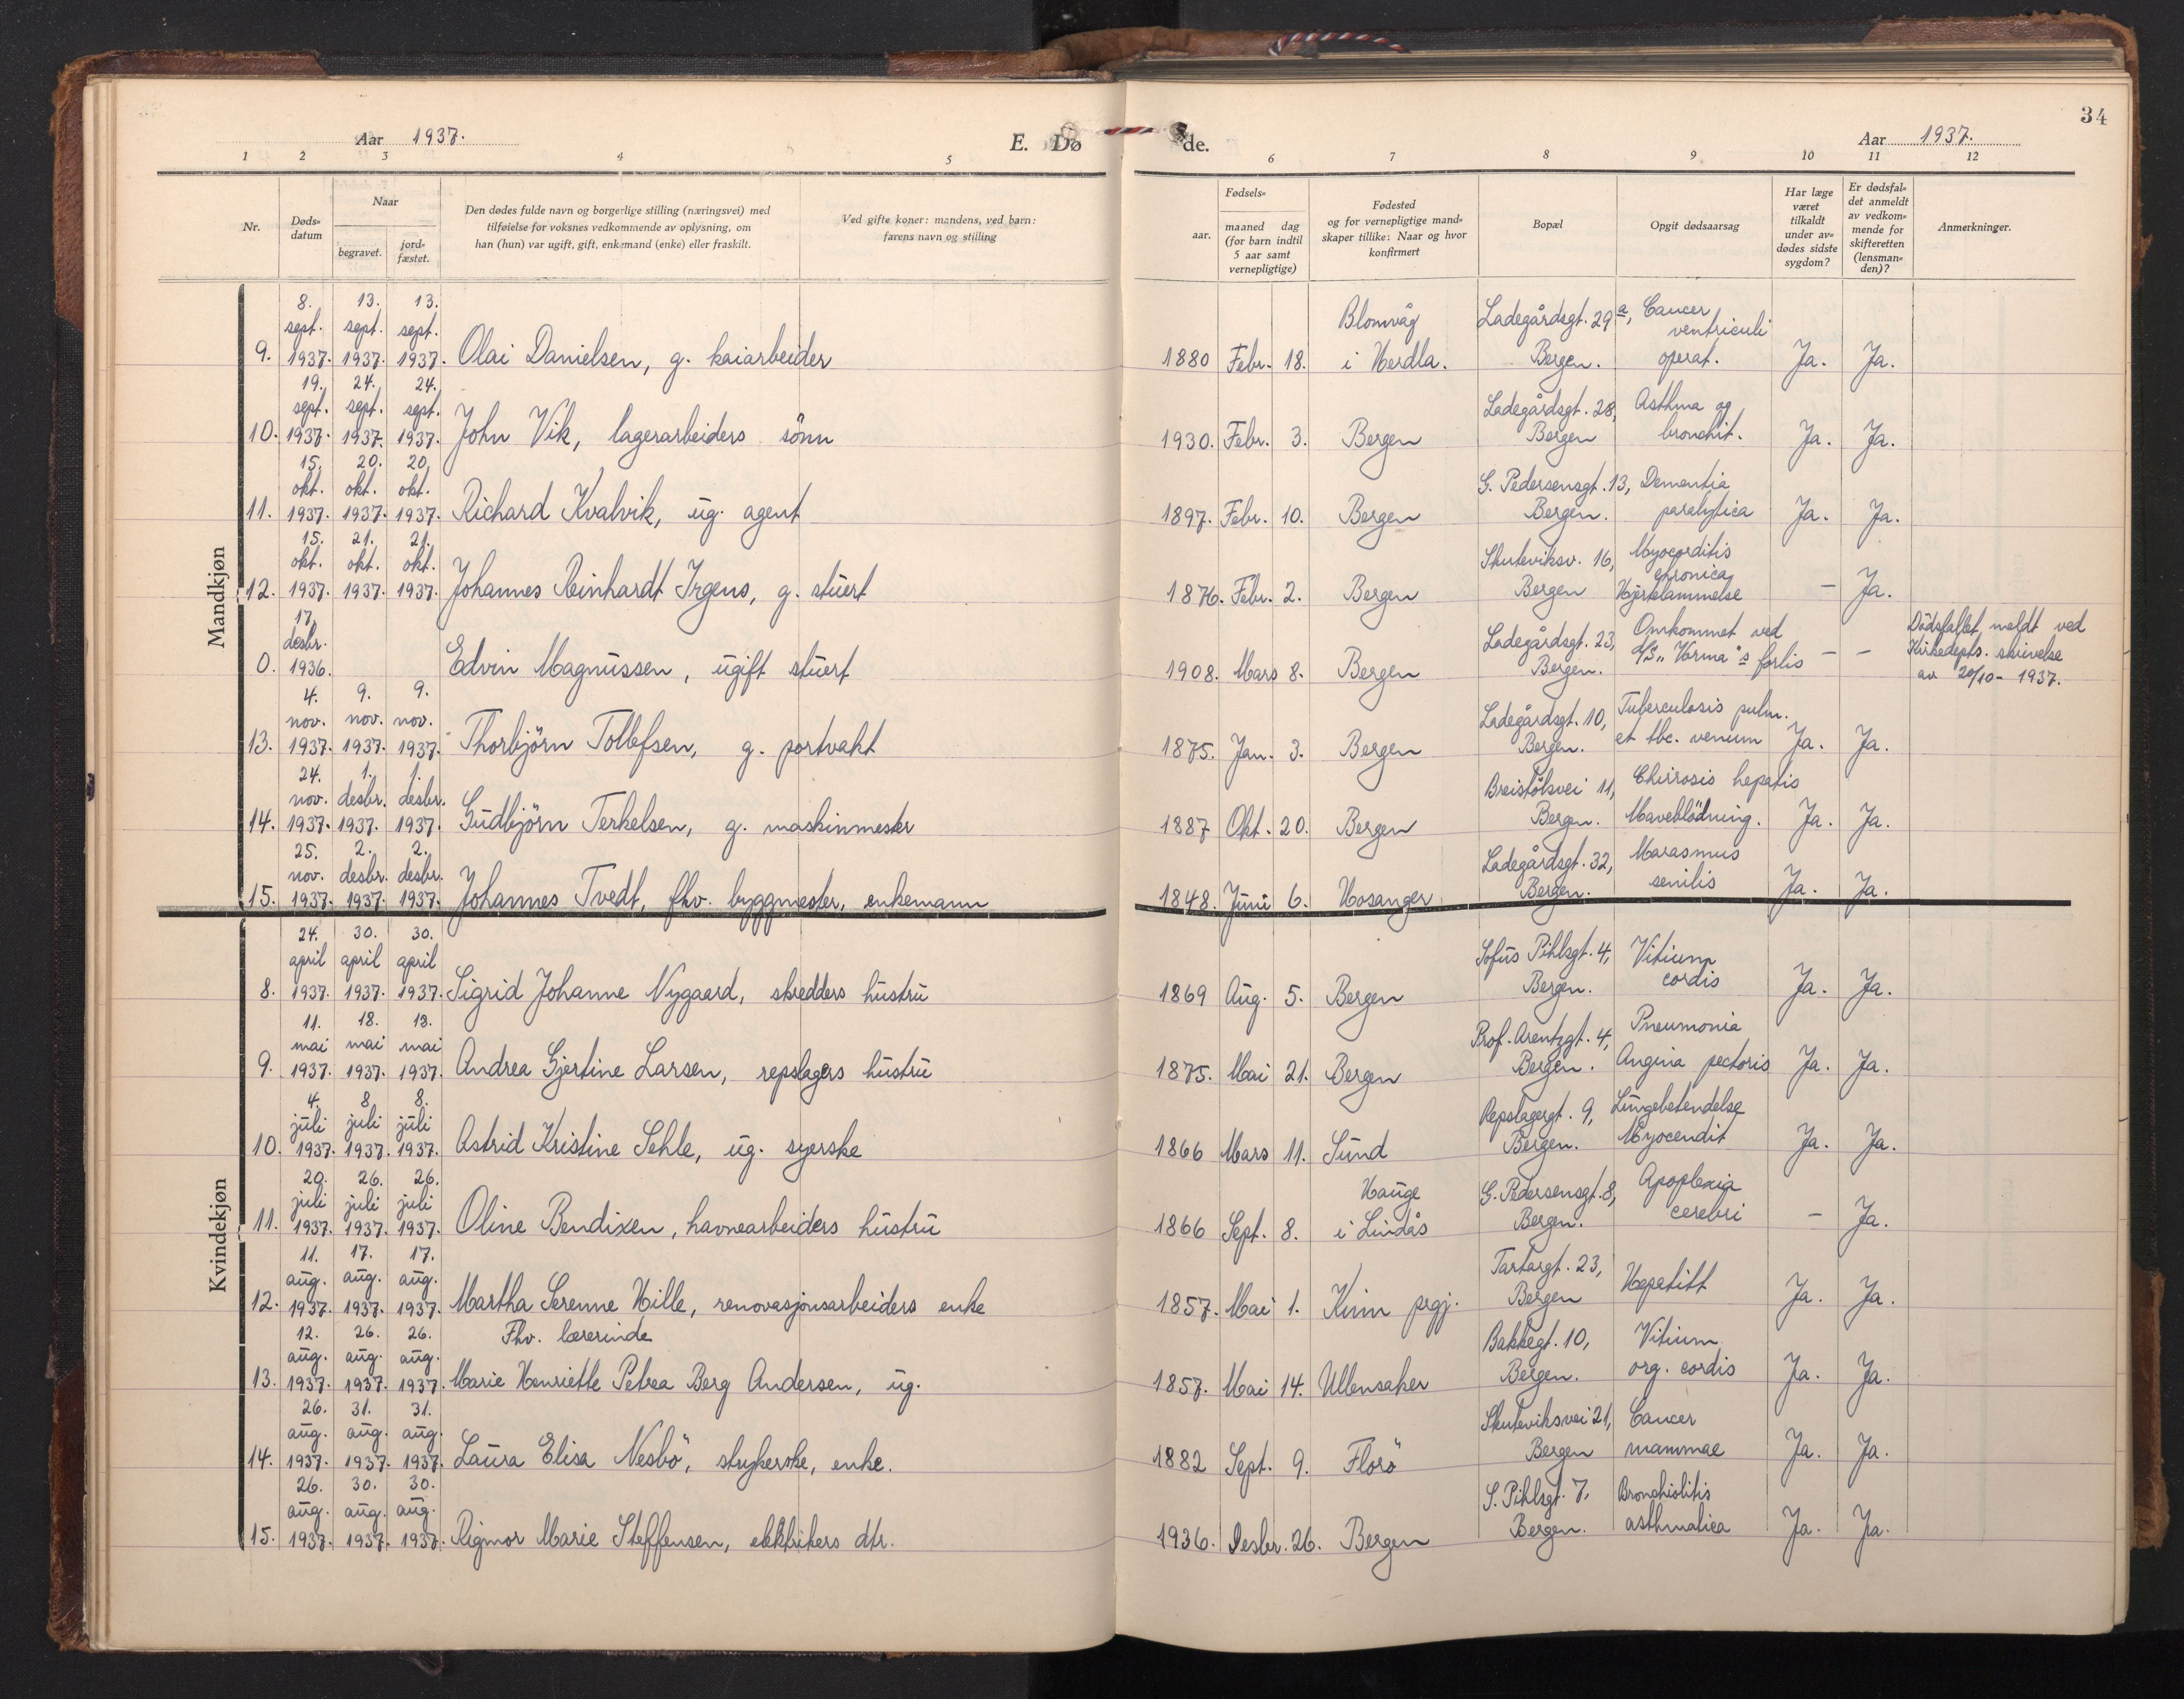 34
Aar 1937.
E. Dø de.
Aar 1937.
1 2 3 4 5 6 7 8 9 10 11 12
Nr.
Døds-
datum
Naar
begravet.
jord-
fæstet.
Den dødes fulde navn og borgerlige stilling (næringsvei) med
tilføielse for voksnes vedkommende av oplysning, om
han (hun) var ugift, gift, enkemand (enke) eller fraskilt.
Ved gifte koner: mandens, ved barn:
farens navn og stilling
Fødsels-
aar.
maaned dag
(for barn indtil
5 aar samt
vernepligtige)
Fødested
og for vernepligtige mand-
skaper tillike: Naar og hvor
konfirmert
Bopæl
Opgit dødsaarsag
Har læge
været
tilkaldt
under av-
dødes sidste
sygdom?
Er dødsfal-
det anmeldt
av vedkom-
mende for
skifteretten
(lensman-
den)?
Anmerkninger.
Mandkjøn
8. 13. 13. Blomvåg Ladegårdsgt. 29a, Cancer
sept. sept. sept. ventriculi
9. 1937. 1937. 1937. Olai Danielsen, g. kaiarbeider 1880 Febr. 18. i Herdla. Bergen. operat. Ja. Ja.
19. 24. 24.
sept. sept. sept. Ladegårdsgt. 28, Asthma og
10. 1937. 1937. 1937. John Vik, lagerarbeiders sönn 1930. Febr. 3. Bergen Bergen bronchit. Ja. Ja.
15. 20. 20.
okt. okt. okt. G. Pedersensgt. 13, Dementia
11. 1937. 1937. 1937. Richard Kvalvik, ug. agent 1897. Febr. 10. Bergen Bergen. paralytica Ja. Ja.
15. 21. 21.
okt. okt. okt. Skuteviksv. 16, Myocorditis
chronica
12. 1937. 1937. 1937. Johannes Reinhardt Irgens, g. stuert 1876. Febr. 2. Bergen Bergen Hjertelammelse – Ja.
17.
desbr. Ladegårdsgt. 23, Omkommet ved Dödsfallet meldt ved
0. 1936. Edvin Magnussen, ugift stuert 1908. Mars 8. Bergen Bergen. D/S „Vorma"s forlis – – Kirkedepts. skrivelse
av 20/10 - 1937.
4. 9. 9.
nov. nov. nov. Ladegårdsgt. 10, Tuberculosis pulm.
13. 1937. 1937. 1937. Thorbjörn Tollefsen, g. portvakt 1875. Jan. 3. Bergen Bergen. et tbc. venum Ja. Ja.
24. 1. 1.
nov. desbr. desbr. Breistölsvei 11, Chirrosis hepatis
14. 1937. 1937. 1937. Gudbjörn Terkelsen, g. maskinmester 1887 Okt. 20. Bergen Bergen. Maveblödning. Ja. Ja.
25. 2. 2.
nov. desbr. desbr. Ladegårdsgt. 32, Marasmus
15. 1937. 1937. 1937. Johannes Tvedt, fhv. byggmester, enkemann 1848. Juni 6. Hosanger Bergen. senilis Ja. Ja.
Kvindekjøn
24. 30. 30.
april april april Sofus Pihlsgt. 4, Vitium
8. 1937. 1937. 1937. Sigrid Johanne Nygaard, skredders hustru 1869 Aug. 5. Bergen Bergen. cordis Ja. Ja.
11. 18. 18.
mai mai mai Prof. Arentzgt. 4, Pneumonia
9. 1937. 1937. 1937. Andrea Gjertine Larsen, repslagers hustru 1875. Mai 21. Bergen Bergen. Angina pectoris Ja. Ja.
4. 8. 8.
juli juli juli Repslagergt. 9, Lungebetendelse
10. 1937. 1937. 1937. Astrid Kristine Sehle, ug. syerske 1866 Mars 11. Sund Bergen. Myocendit Ja. Ja.
20. 26. 26. Hauge
juli juli juli G. Pedersensgt. 8, Apoplexia
11. 1937. 1937. 1937. Oline Bendixen, havnearbeiders hustru 1866 Sept. 8. i Lindås Bergen. cerebri – Ja.
11. 17. 17.
aug. aug. aug. Tartargt. 23,
12. 1937. 1937. 1937. Martha Serenne Hille, renovasjonsarbeiders enke 1857. Mai 1. Kinn prgj. Bergen Hepatitt Ja. Ja.
12. 26. 26. Fhv. lærerinde
aug. aug. aug. Bakkegt. 10, Vitium
13. 1937. 1937. 1937. Marie Henriette Petrea Berg Andersen, ug. 1857. Mai 14. Ullensaker Bergen. org. cordis Ja. Ja.
26. 31. 31.
aug. aug. aug. Skuteviksvei 21, Cancer
14. 1937. 1937. 1937. Laura Elisa Nesbö, strykerske, enke. 1882 Sept. 9. Florö Bergen mammae Ja. Ja.
26. 30. 30.
aug. aug. aug. S. Pihlsgt. 7, Bronchiolitis
15. 1937. 1937. 1937. Rigmor Marie Steffensen, elektrikers dtr. 1936. Desbr. 26. Bergen Bergen. asthmatica Ja. Ja.